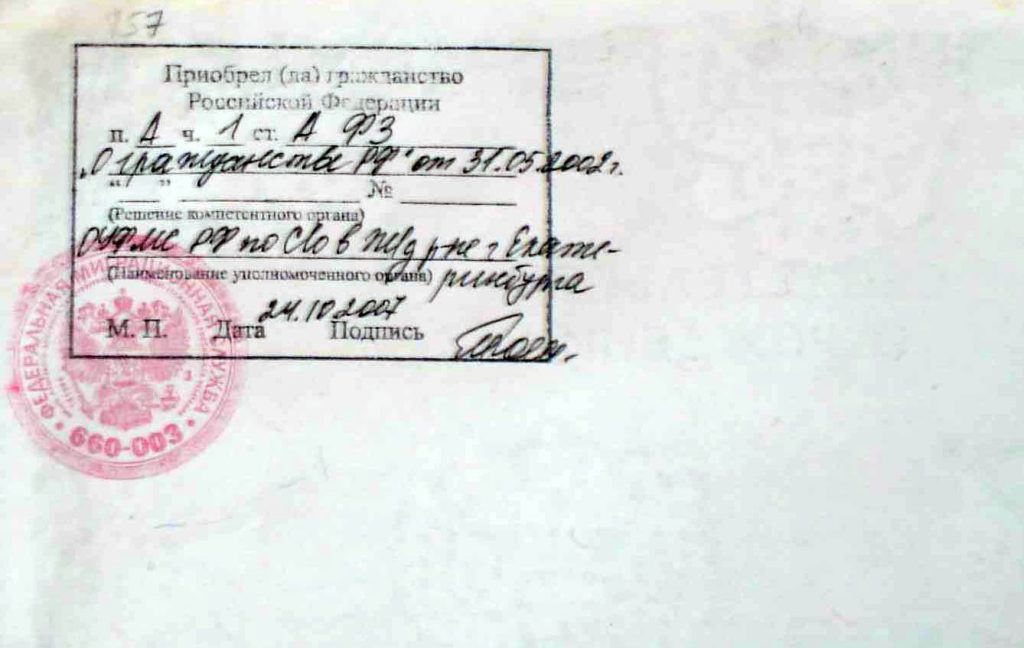 157
Приобрел (ла) гражданство
Российской Федерации
п. А ч. 1 ст. А ФЗ
„О гражданстве РФ" от 31.05.2002г.
"     "     №
(Решение компетентного органа)
ОУФМС РФ по СО в Ж/д р-не г Екате-
(Наименование уполномоченного органа) ринбурга
24.10.2007
М. П. Дата Подпись
ФЕДЕРАЛЬНАЯ МИГРАЦИОННАЯ СЛУЖБА
660-003